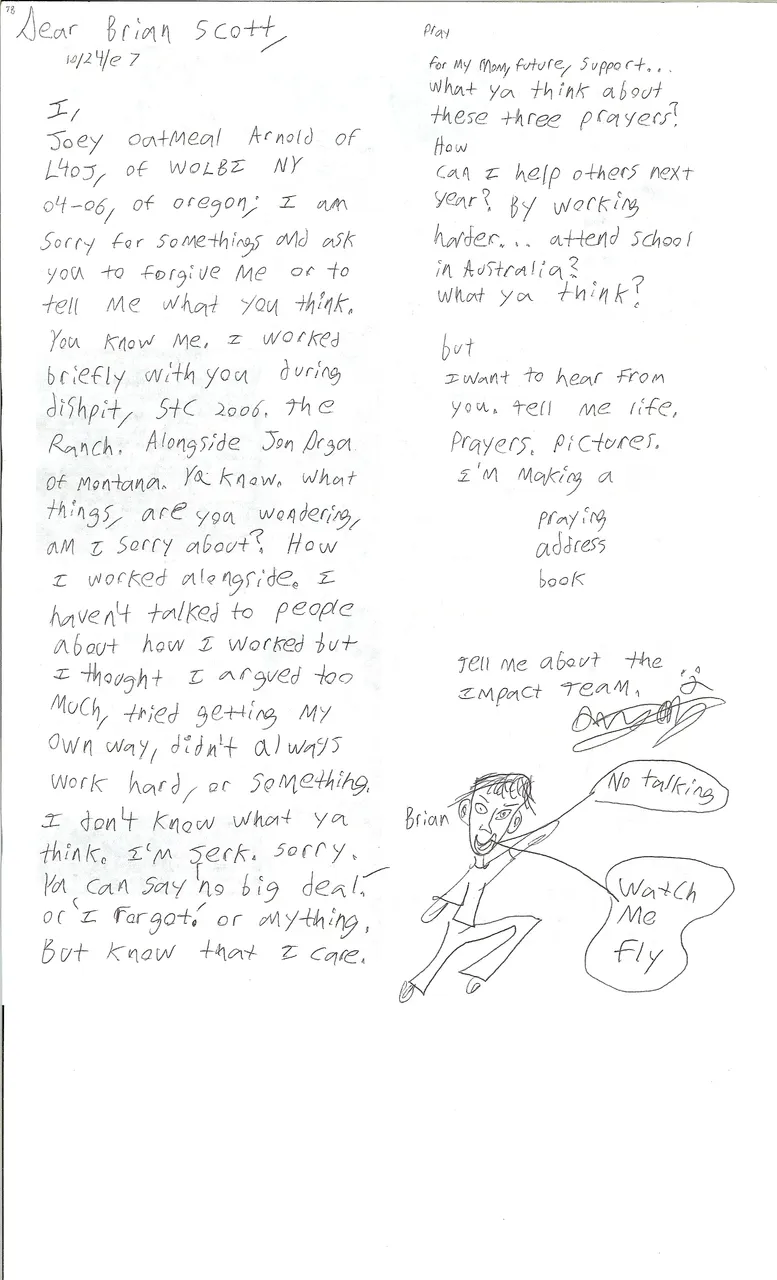 78
Dear Brian Scott,
10/24/07
I,
Joey oatmeal Arnold of
L4OJ, of WOLBI NY
04-06, of oregon; I am
Sorry for somethings and ask
you to forgive me or to
tell me what you think.
You know me. I worked
briefly with you during
dishpit, StC 2006. the
Ranch. Alongside Jon Drga
of Montana. Ya know. what
things, are you wondering,
am I sorry about? How
I worked alongside. I
haven't talked to people
about how I worked but
I thought I argued too
Much, tried getting My
own way, didn't always
work hard, or something.
I don't know what ya
think. I'm Jerk. Sorry.
Ya can say "no big deal."
or 'I forgot.' or anything.
But know that I care.
Pray
for My Mom, future, Support...
what ya think about
these three prayers?
How
can I help others next
year? By working
harder... attend school
in Australia?
what ya think?
but
I want to hear from
you. tell me life,
Prayers. pictures.
I'm Making a
praying
address
book
Tell me about the
Impact Team.
Brian
No talking
Watch
Me
Fly